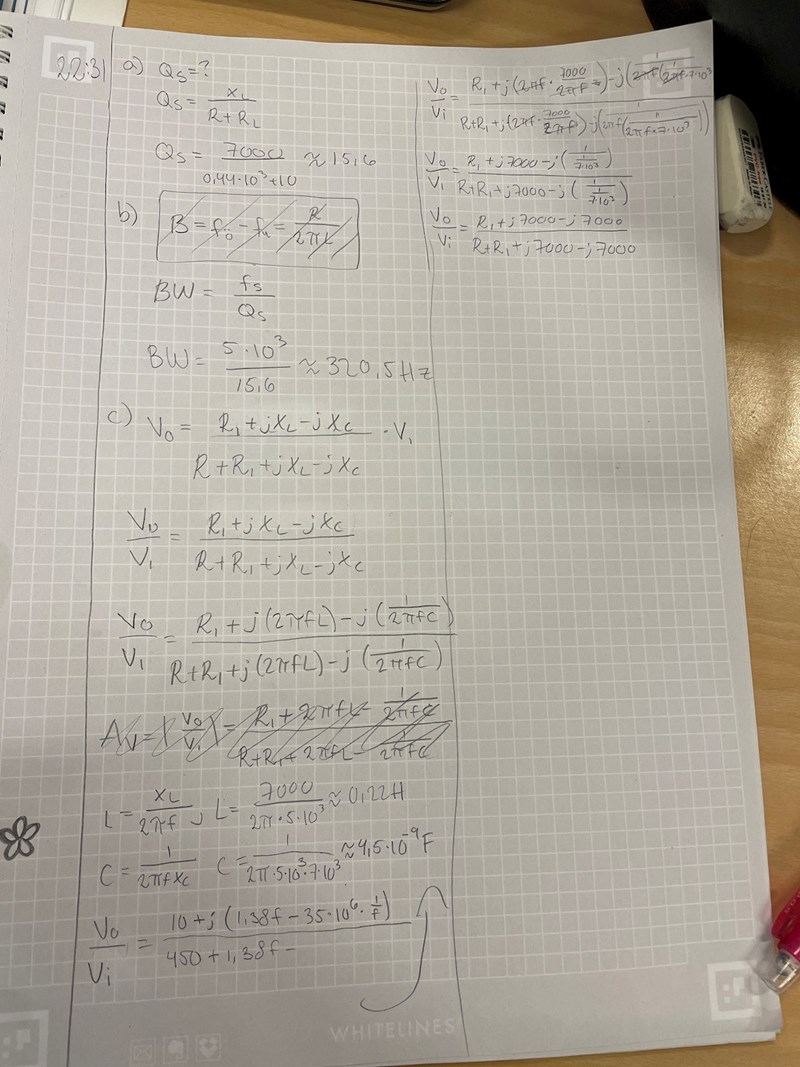 22:31
a) Qs=?
Qs = XL / (R+RL)
Qs = 7000 / (0,44·10³+10) ≈ 15,6
b) B = fö - fu = R / (2πL)
BW = fs / Qs
BW = 5·10³ / 15,6 ≈ 320,5Hz
c) V0 = (R1+jXL-jXC) / (R+R1+jXL-jXC) · Vi
V0/Vi = (R1+jXL-jXC) / (R+R1+jXL-jXC)
V0/Vi = (R1+j(2πfL)-j(1/(2πfC))) / (R+R1+j(2πfL)-j(1/(2πfC)))
Av=|V0/Vi|= (R1+2πfL-1/(2πfC)) / (R+R1+2πfL-1/(2πfC))
L = XL/(2πf), L = 7000/(2π·5·10³) ≈ 0,22H
C = 1/(2πfXC) C = 1/(2π·5·10³·7·10³) ≈ 4,5·10⁻⁹F
V0/Vi = (10+j(1,38f-35·10⁶·1/f)) / (450+1,38f-
V0/Vi = (R1+j(2πf·7000/(2πf))-j(1/(2πf(1/(2πf·7·10³) / (R+R1+j(2πf·7000/(2πf))-j(1/(2πf(1/(2πf·7·10³))))
V0/Vi = (R1+j7000-j(1/(1/(7·10³)))) / (R+R1+j7000-j(1/(1/(7·10³))))
V0/Vi = (R1+j7000-j7000) / (R+R1+j7000-j7000)
WHITELINES